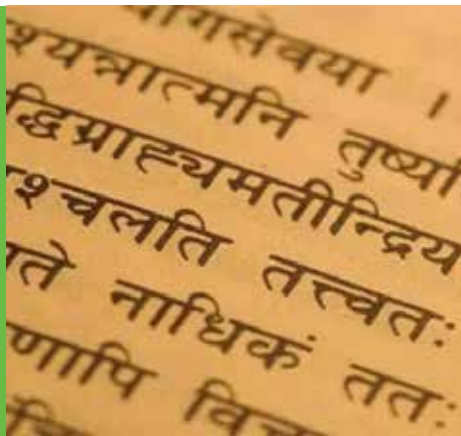 योगसेवया ।
श्यन्नात्मनि तुष्य
द्धिग्राह्यमतीन्द्रिय
श्चलति तत्त्वतः
ते नाधिकं ततः
णापि